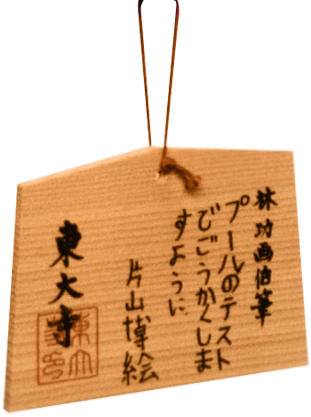 林功画伯筆
プールのテスト
でごうかくしま
すように、
片山博絵
東大寺